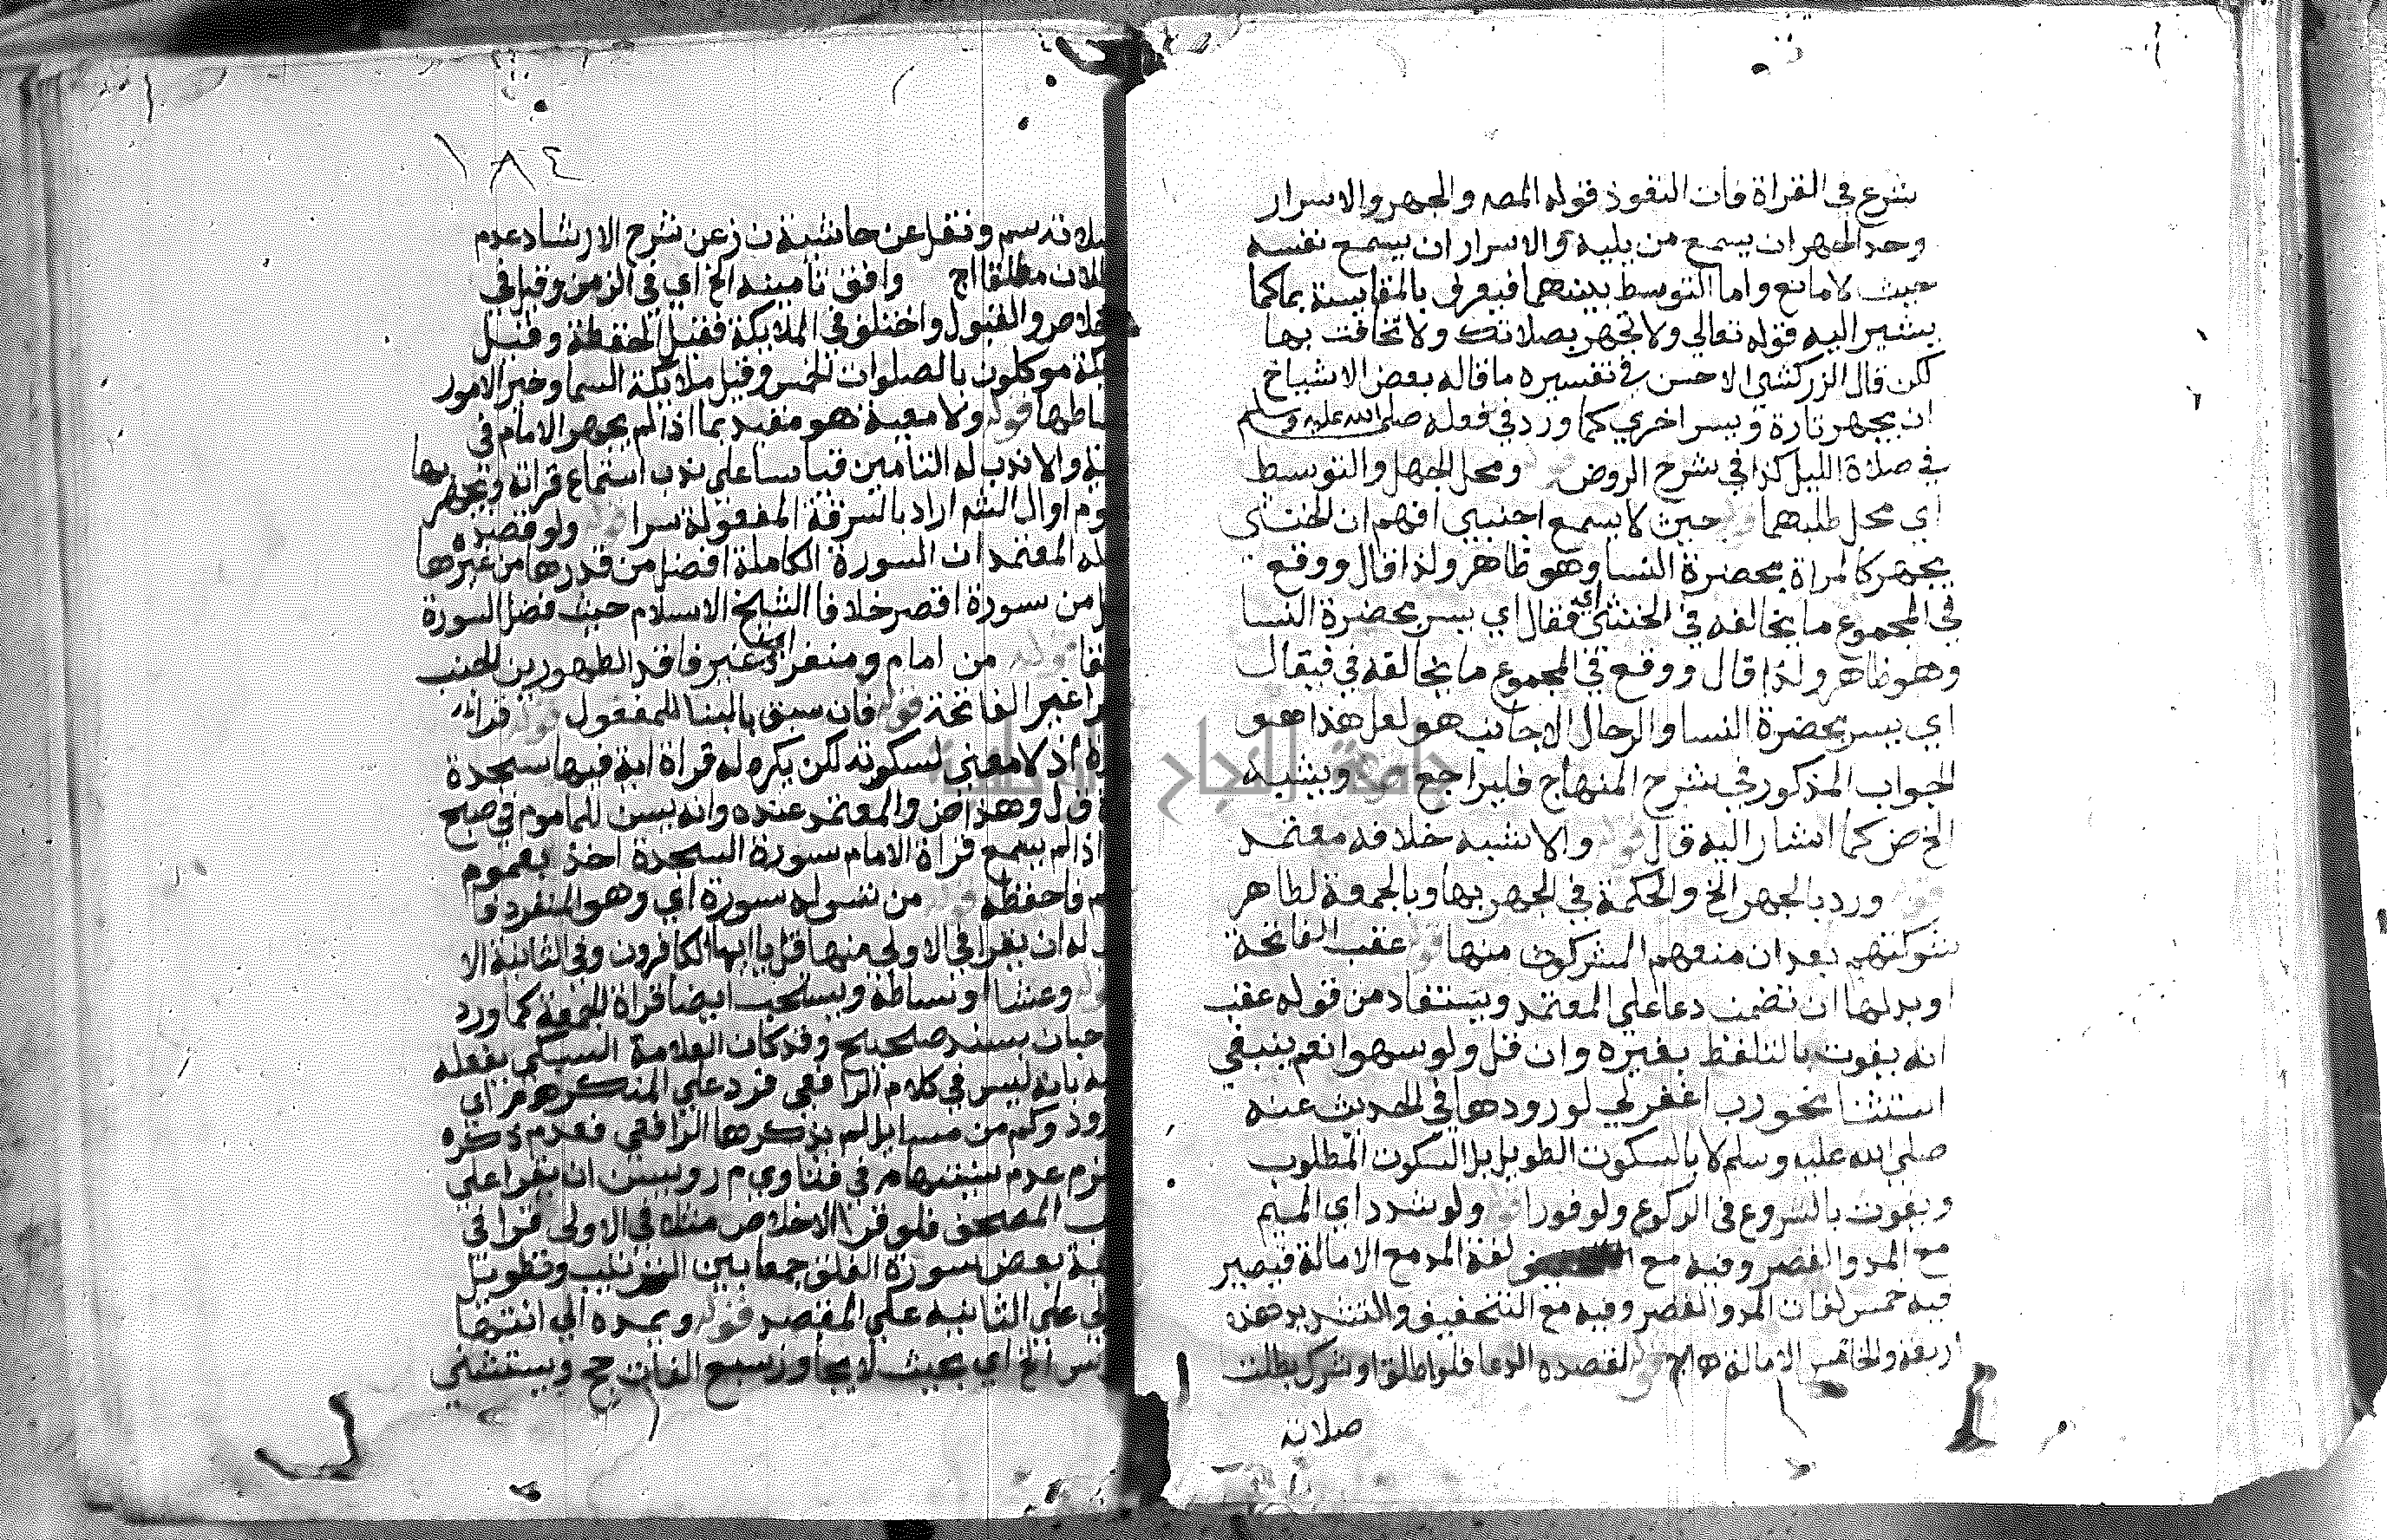 شرع في القراة فات التعوذ قوله المص والجهر والاسرار
وحد الجهر ان يسمع من يليه والاسرار ان يسمع نفسه
حيث لا مانع واما التوسط بينهما فيعرف بالمقايسة بما كما
يشير اليه قوله تعالي ولا تجهر بصلاتك ولا تخافت بها
لكن قال الزركشي الاحسن في تفسيره ما قاله بعض الاشياخ
ان يجهر تارة ويسر اخري كما ورد في فعله صلي الله عليه وسلم
في صلاة الليل كذا في شرح الروض ومحل الجهل والتوسط
اي محل طلبهما قوله حيث لا يسمع اجنبي افهم ان الخنثي
يجهر كالمراة بحضرة النسا وهو ظاهر ولذا قال ووقع
في المجموع ما يخالفه في الخنثي فقال اي يسر بحضرة النسا
وهو ظاهر ولذا قال ووقع في المجموع ما يخالفه في فيقال
اي يسر بحضرة النسا والرجال الاجانب هو لعل هذا هو
الجواب المذكور في شرح المنهاج فليراجع ويشبه
الخ ض كما اشار اليه قال قوله والاشبه خلافه معتمد
قوله ورد بالجهر الخ والحكمة في الجهر بها وبالجمعة لظاهر
شوكتهم بعد ان منعهم المشركون منها قوله عقب الفاتحة
او بدلها ان تضمن دعا علي المعتمد ويستفاد من قوله عقب
انه يفوت بالتلفظ بغيره وان قل ولو سهوا نعم ينبغي
استثنا نحو رب اغفر لي لورودها في الحديث عنه
صلي الله عليه وسلم لا بالسكوت الطويل بل السكوت المطلوب
ويفوت بالشروع في الركوع ولو فورا قوله ولو شدد اي الميم
مع المد والقصر وفيه مع لغة المد مع الامالة فيصير
فيه خمس لغات المد والقصر وفيه مع التخفيف والتشديد هذه
اربعة والخامس الامالة قوله لقصده الدعا فلو اطلق او شرك بطلت
صلاته
١٨٤
صلاته سم ونقل عن حاشية ن ز عن شرح الارشاد عدم
مطلقا اج وافق تامينه الخ اي في الزمن وقيل في
والقبول واختلف في الملايكة فقيل الحفظة وقيل
موكلون بالصلوات الخمس وقيل ملايكة السما وخير الامور
قوله ولا معية هو مقيد بما اذا لم يجهر الامام في
والا ندب له التامين قياسا علي ندب استماع قراته وتجهر بها
اراد بالسرقة المفعولة سرا قوله ولو قصد
المعتمد ان السورة الكاملة افضل من قدرها من غيرها
من سورة اقصر خلافا الشيخ الاسلام حيث فضل السورة
قوله من امام ومنفرد غير فاقد الطهورين الجنب
غير الفاتحة قوله فان سبق بالبنا للمفعول قوله قراته
اذ لا معني لسكوته لكن يكره له قراة اية فيها سجدة
ق ل وهذا ض والمعتمد عنده وانه يسن للماموم في صبح
اذا لم يسمع قراة الامام سورة السجدة اخذ بعموم
فاحفظه قوله من تسن له سورة اي وهو المنفرد
له ان يقرا في الاولي منها قل يا ايها الكافرون وفي الثانية الا
وعشا اوساطه ويستحب ايضا قراة الجمعة كما ورد
حبان بسند صحيح وقد كان العلامة السبكي يفعله
بانه ليس في كلام الرافعي فرد علي المنكر
وكم من مسايل لم يذكرها الرافعي فعدم ذكره
عدم سنيتها م ر في فتاوي م ر ويسن ان يقرا علي
المصحف فلو قرا الاخلاص مثلا في الاولي قرا في
بعض سورة الفلق جمعا بين الترتيب وتطويل
علي الثانية علي المقصد قوله ويمده الي انتها
الخ اي بحيث لا يجاوز سبع الفات ح ج ويستثني
جامعة النجاح